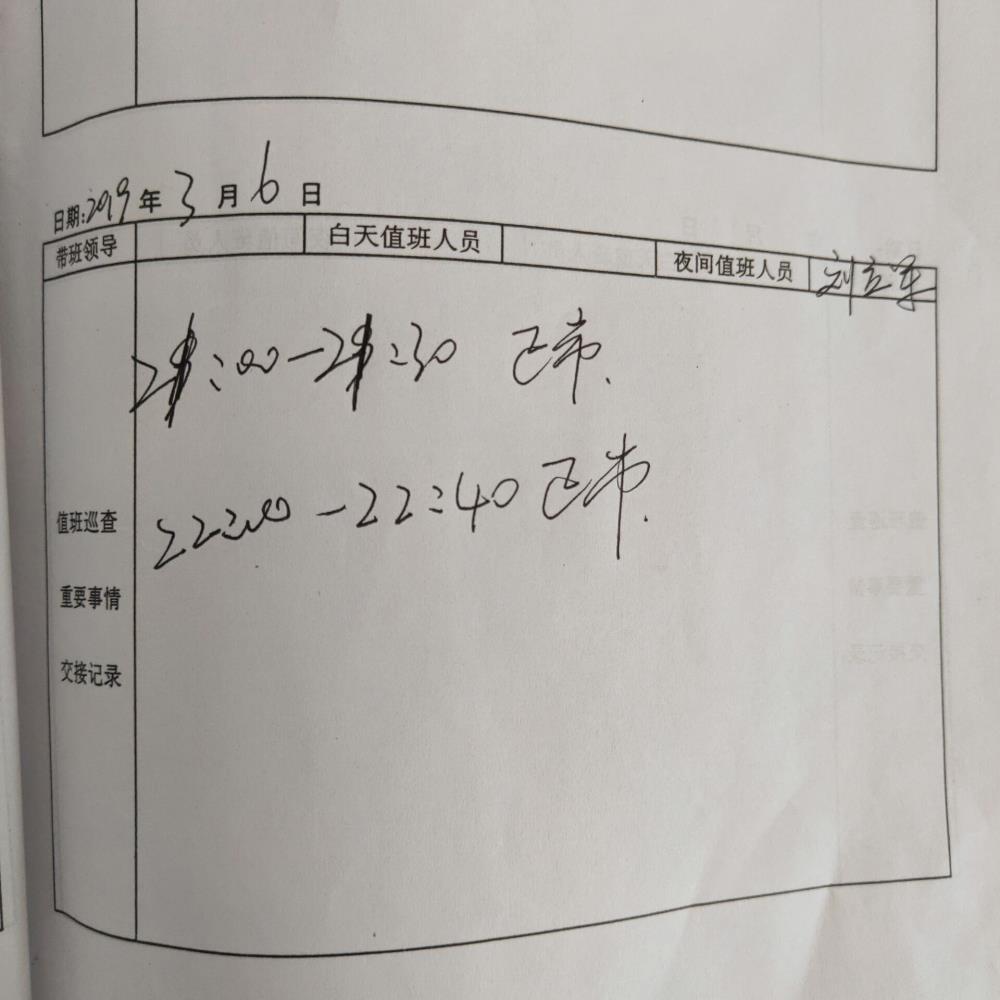 日期:2019年3月6日
带班领导 白天值班人员 夜间值班人员 刘立军
21:00-21:30 正常.
值班巡查 22:00-22:40 正常.
重要事情
交接记录